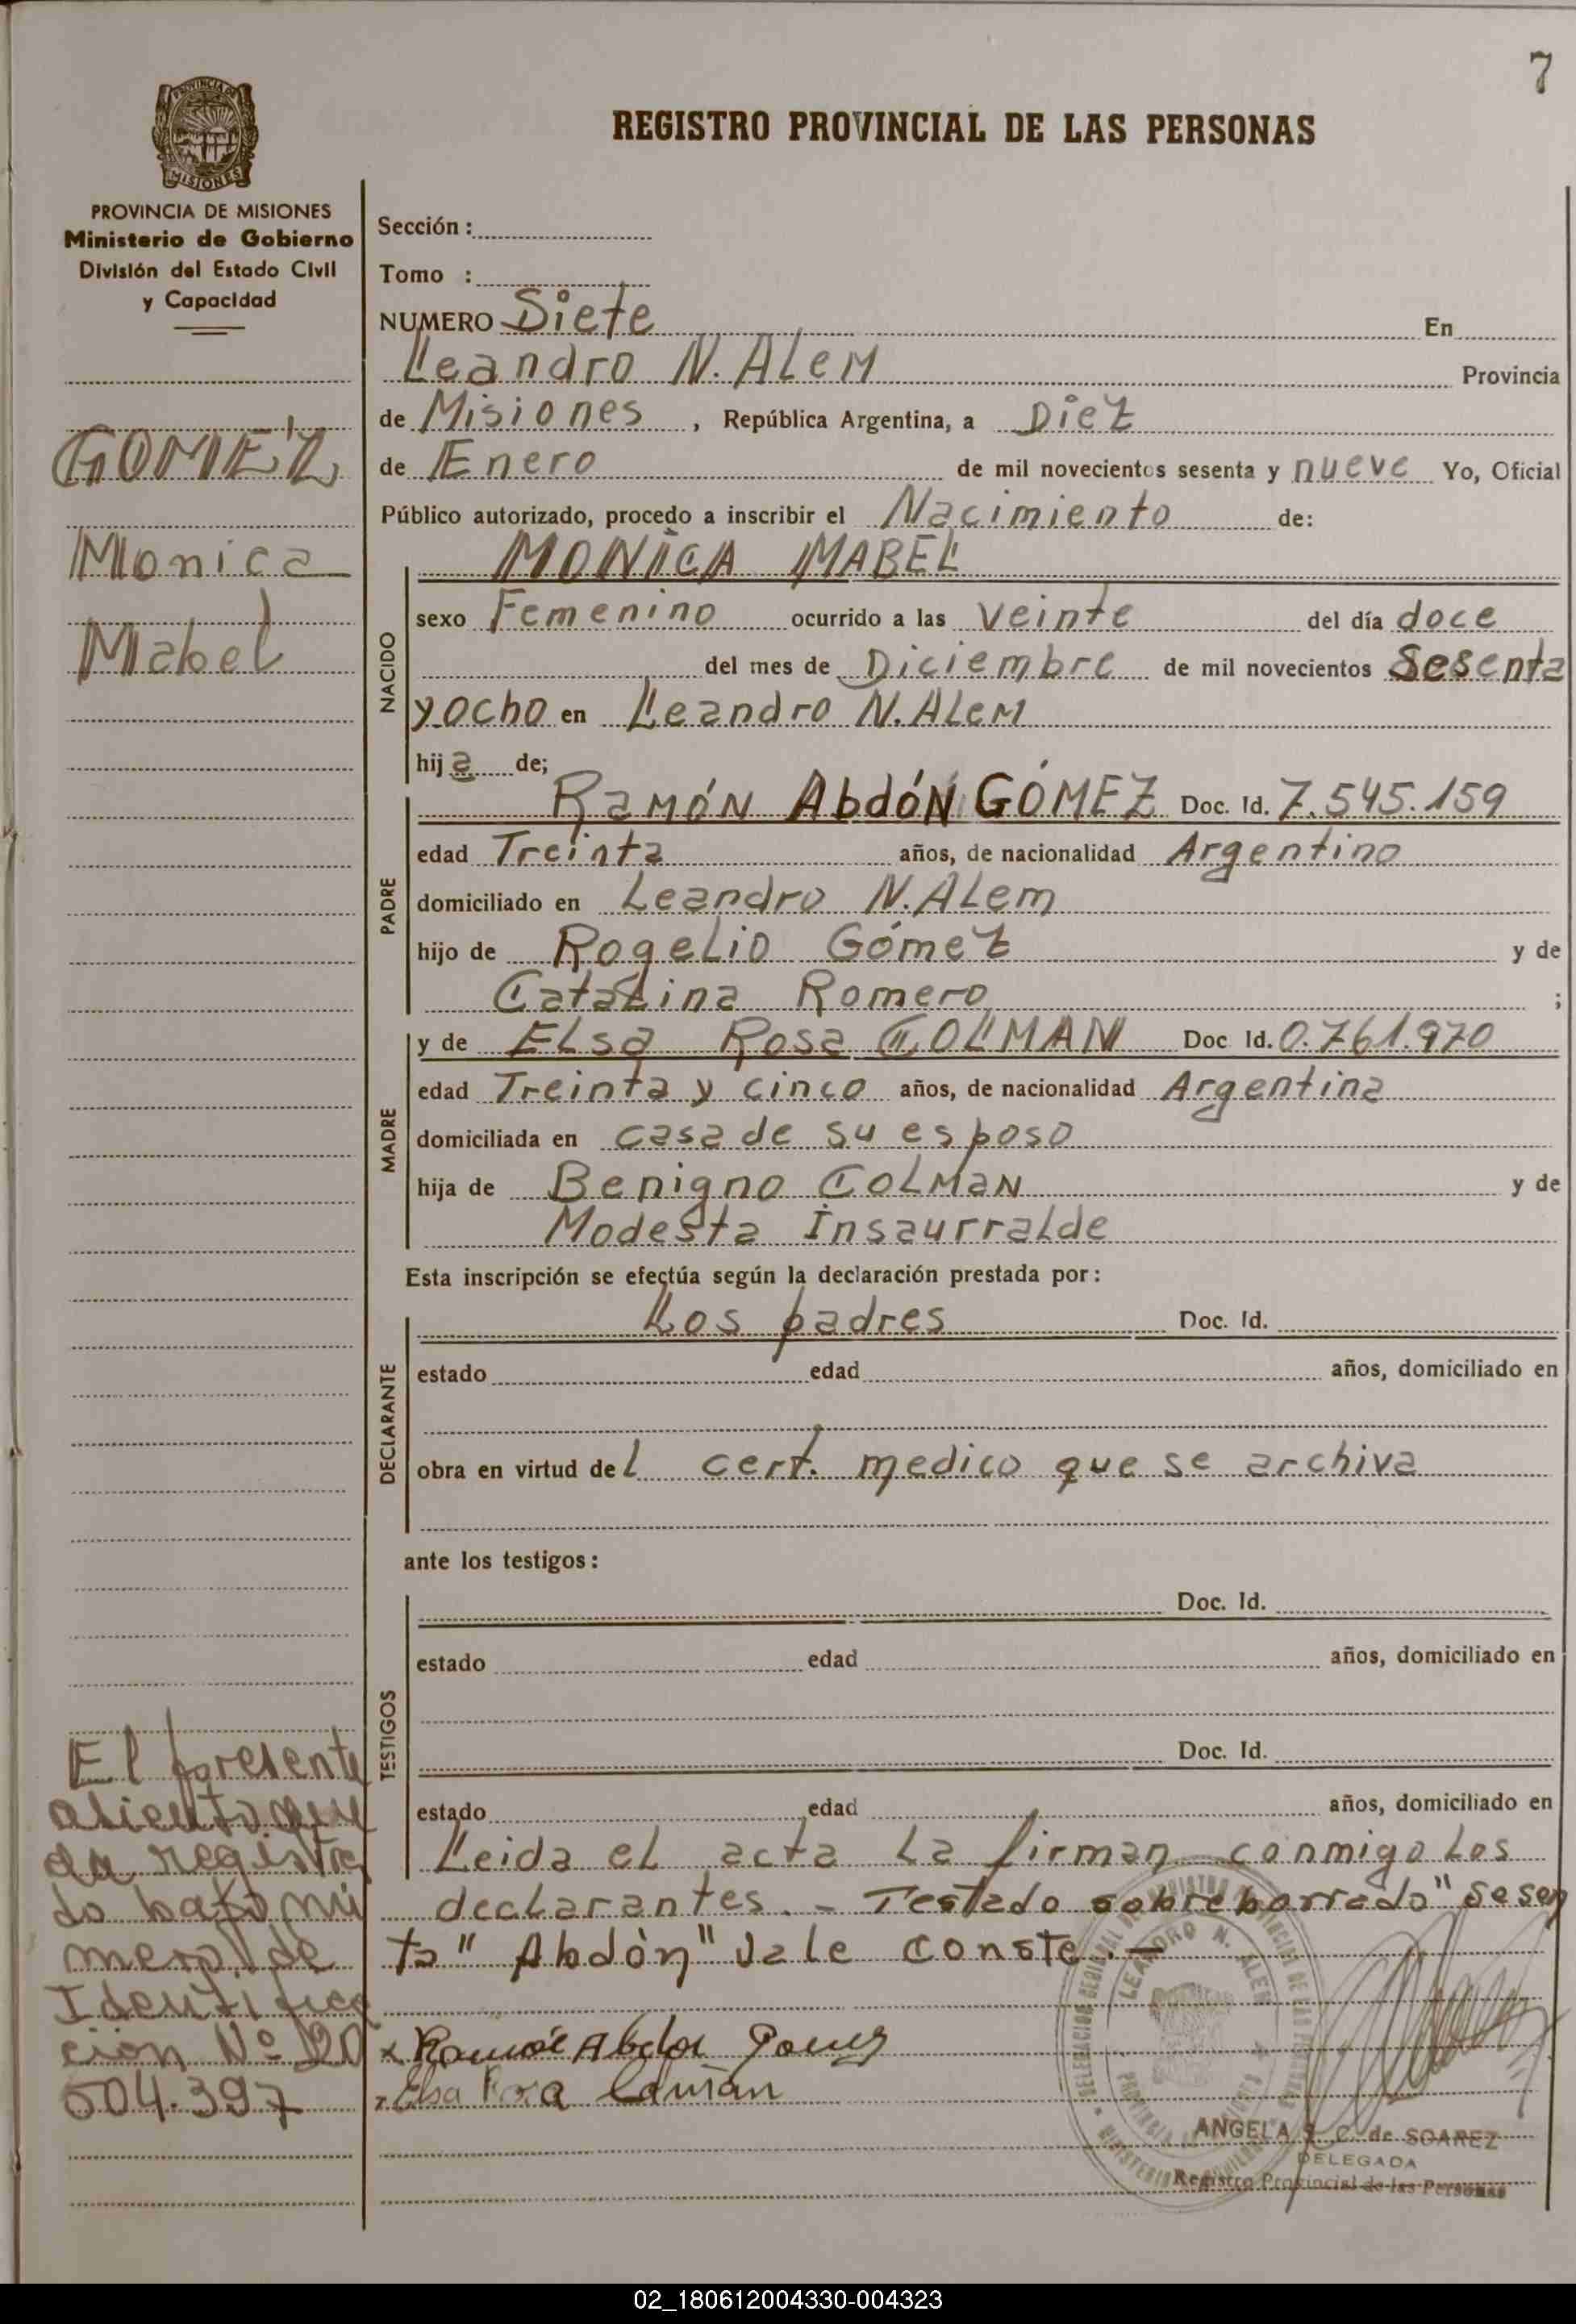 7
REGISTRO PROVINCIAL DE LAS PERSONAS
PROVINCIA DE MISIONES
MISIONES
PROVINCIA DE MISIONES
Ministerio de Gobierno
División del Estado Civil
y Capacidad
GOMEZ
Monica
Mabel
Sección :
Tomo :
NUMERO Siete En
Leandro N. ALEM Provincia
de Misiones , República Argentina, a Diez
de Enero de mil novecientos sesenta y nueve Yo, Oficial
Público autorizado, procedo a inscribir el Nacimiento de:
MONICA MABEL
NACIDO
sexo Femenino ocurrido a las veinte del día doce
del mes de Diciembre de mil novecientos Sesenta
y ocho en Leandro N. ALEM
hij a de;
PADRE
Ramón Abdón GÓMEZ Doc. Id. 7.545.159
edad Treinta años, de nacionalidad Argentino
domiciliado en Leandro N. ALem
hijo de Rogelio Gómez y de
Catalina Romero ;
MADRE
y de Elsa Rosa COLMAN Doc Id. 0.761.970
edad Treinta y cinco años, de nacionalidad Argentina
domiciliada en casa de su esposo
hija de Benigno COLMAN y de
Modesta Insaurralde
Esta inscripción se efectúa según la declaración prestada por:
DECLARANTE
Los padres Doc. Id.
estado edad años, domiciliado en
obra en virtud del cert. medico que se archiva
ante los testigos:
TESTIGOS
Doc. Id.
estado edad años, domiciliado en
Doc. Id.
estado edad años, domiciliado en
Leida el acta la firman conmigo los
declarantes. - Testado sobreborrado "Sesen
ta" Abdón" Vale Conste. -
El presente
asiento que
da registra
do bajo nú
mero de
Identifica
ción Nº 20
504.397
x Ramón Abdon Gomez
Elsa Rosa Colman
LEANDRO N. ALEM
ANGELA S. C. de SOAREZ
DELEGADA
Registro Provincial de las Personas
02_180612004330-004323